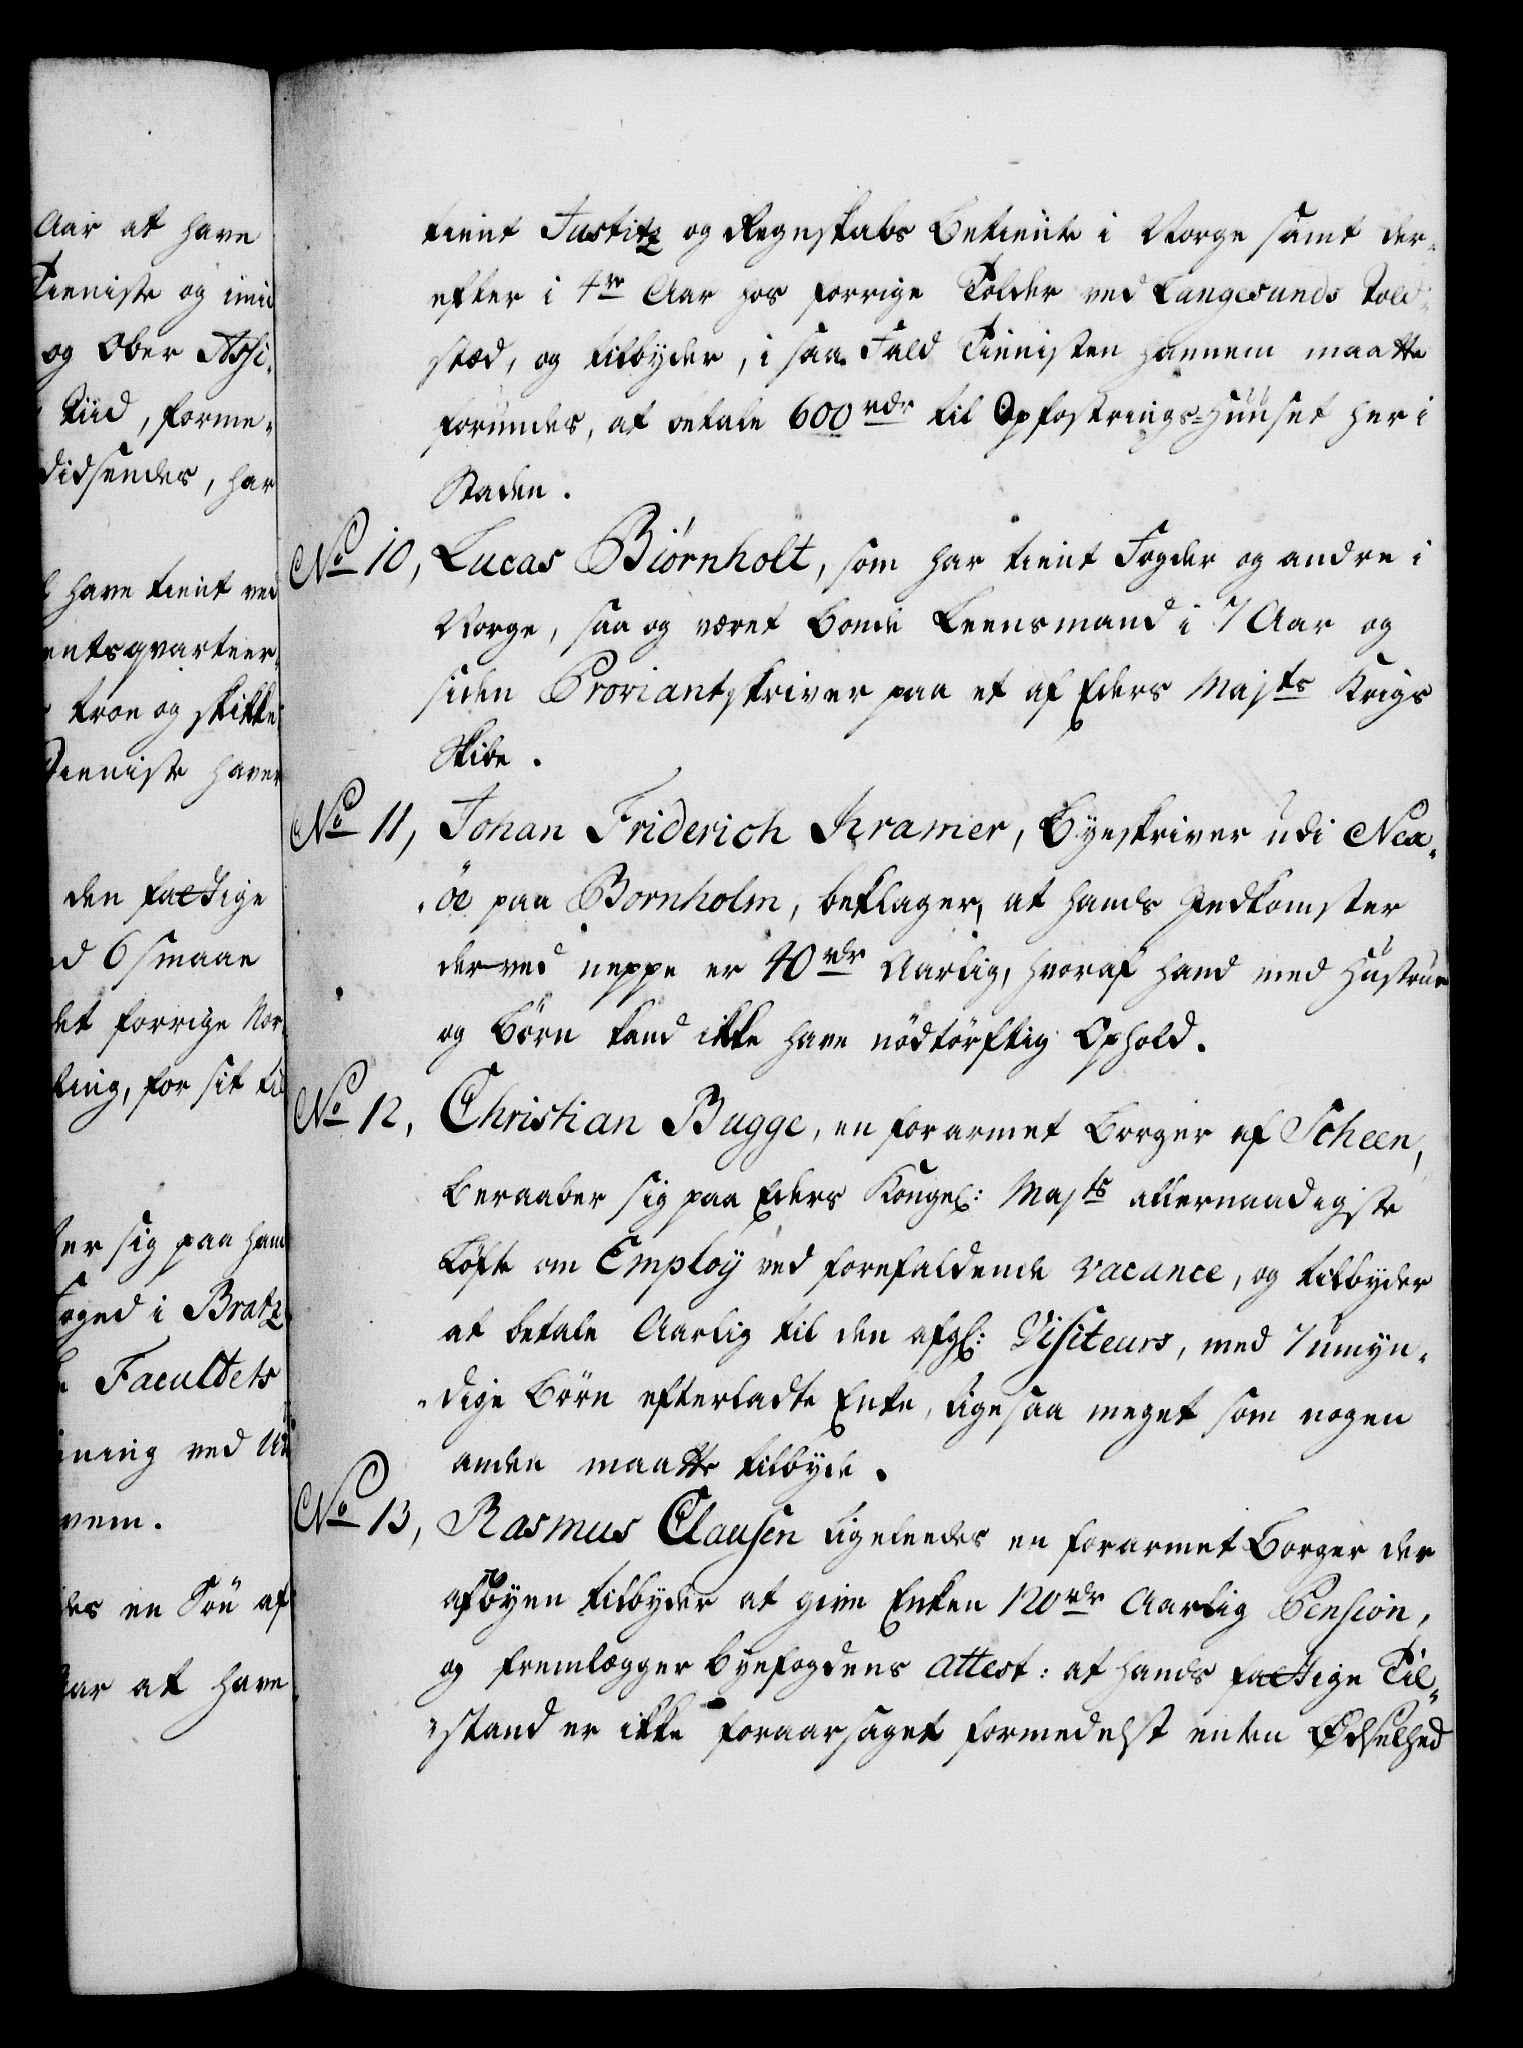 Aar at have
Tieniste og imid
og Ober Assi-
Tiid, forme-
didsendes, har
have tient ved
entsqvarteer-
troe og skikke
Tieniste haver
den fattige
d 6 smaae
det forrige Nor-
ling, for sit til
ter sig paa hans
Foged i Bratz
Facultets
ning ved Un
vem.
des en Søn af
Aar at have
tient Justitz og Regnskabs Betiente i Norge samt der-
efter i 4re Aar hos forrige Tolder ved Langesunds Told-
stæd, og tilbyder, i saa Fald Tienisten hannem maatte
forundes, at betale 600 rdr til Opfostrings-Huuset her i
Staden.
No 10, Lucas Biørnholt, som har tient Fogder og andre i
Norge, saa og været Bonde Leensmand i 7 Aar og
siden Proviantskriver paa et af Eders Majts Krigs
Skibe.
No 11, Johan Friderich Kramer, Byeskriver udi Nex-
-öe paa Bornholm, beklager, at hands Indkomster
derved neppe er 40 rdr Aarlig, hvoraf hand med Hustrue
og Börn kand ikke have nödtörftig Ophold.
No 12, Christian Bugge, en forarmet Borger af Scheen,
beraaber sig paa Eders Kongel: Majts allernaadigste
Løfte om Employ ved forefaldende vacance, og tilbyder
at betale Aarlig til den afgl: Visiteurs, med 7 umyn-
-dige Börn efterladte Enke, ligesaa meget som nogen
anden maatte tilbyde.
No 13, Rasmus Clausen ligeleedes en forarmet Borger der
af Byen tilbyder at give Enken 120 rdr Aarlig Pension,
og fremlægger byefogdens attest: at hands fattige Til-
-stand er ikke foraarsaget formedelst enten Ødselhed